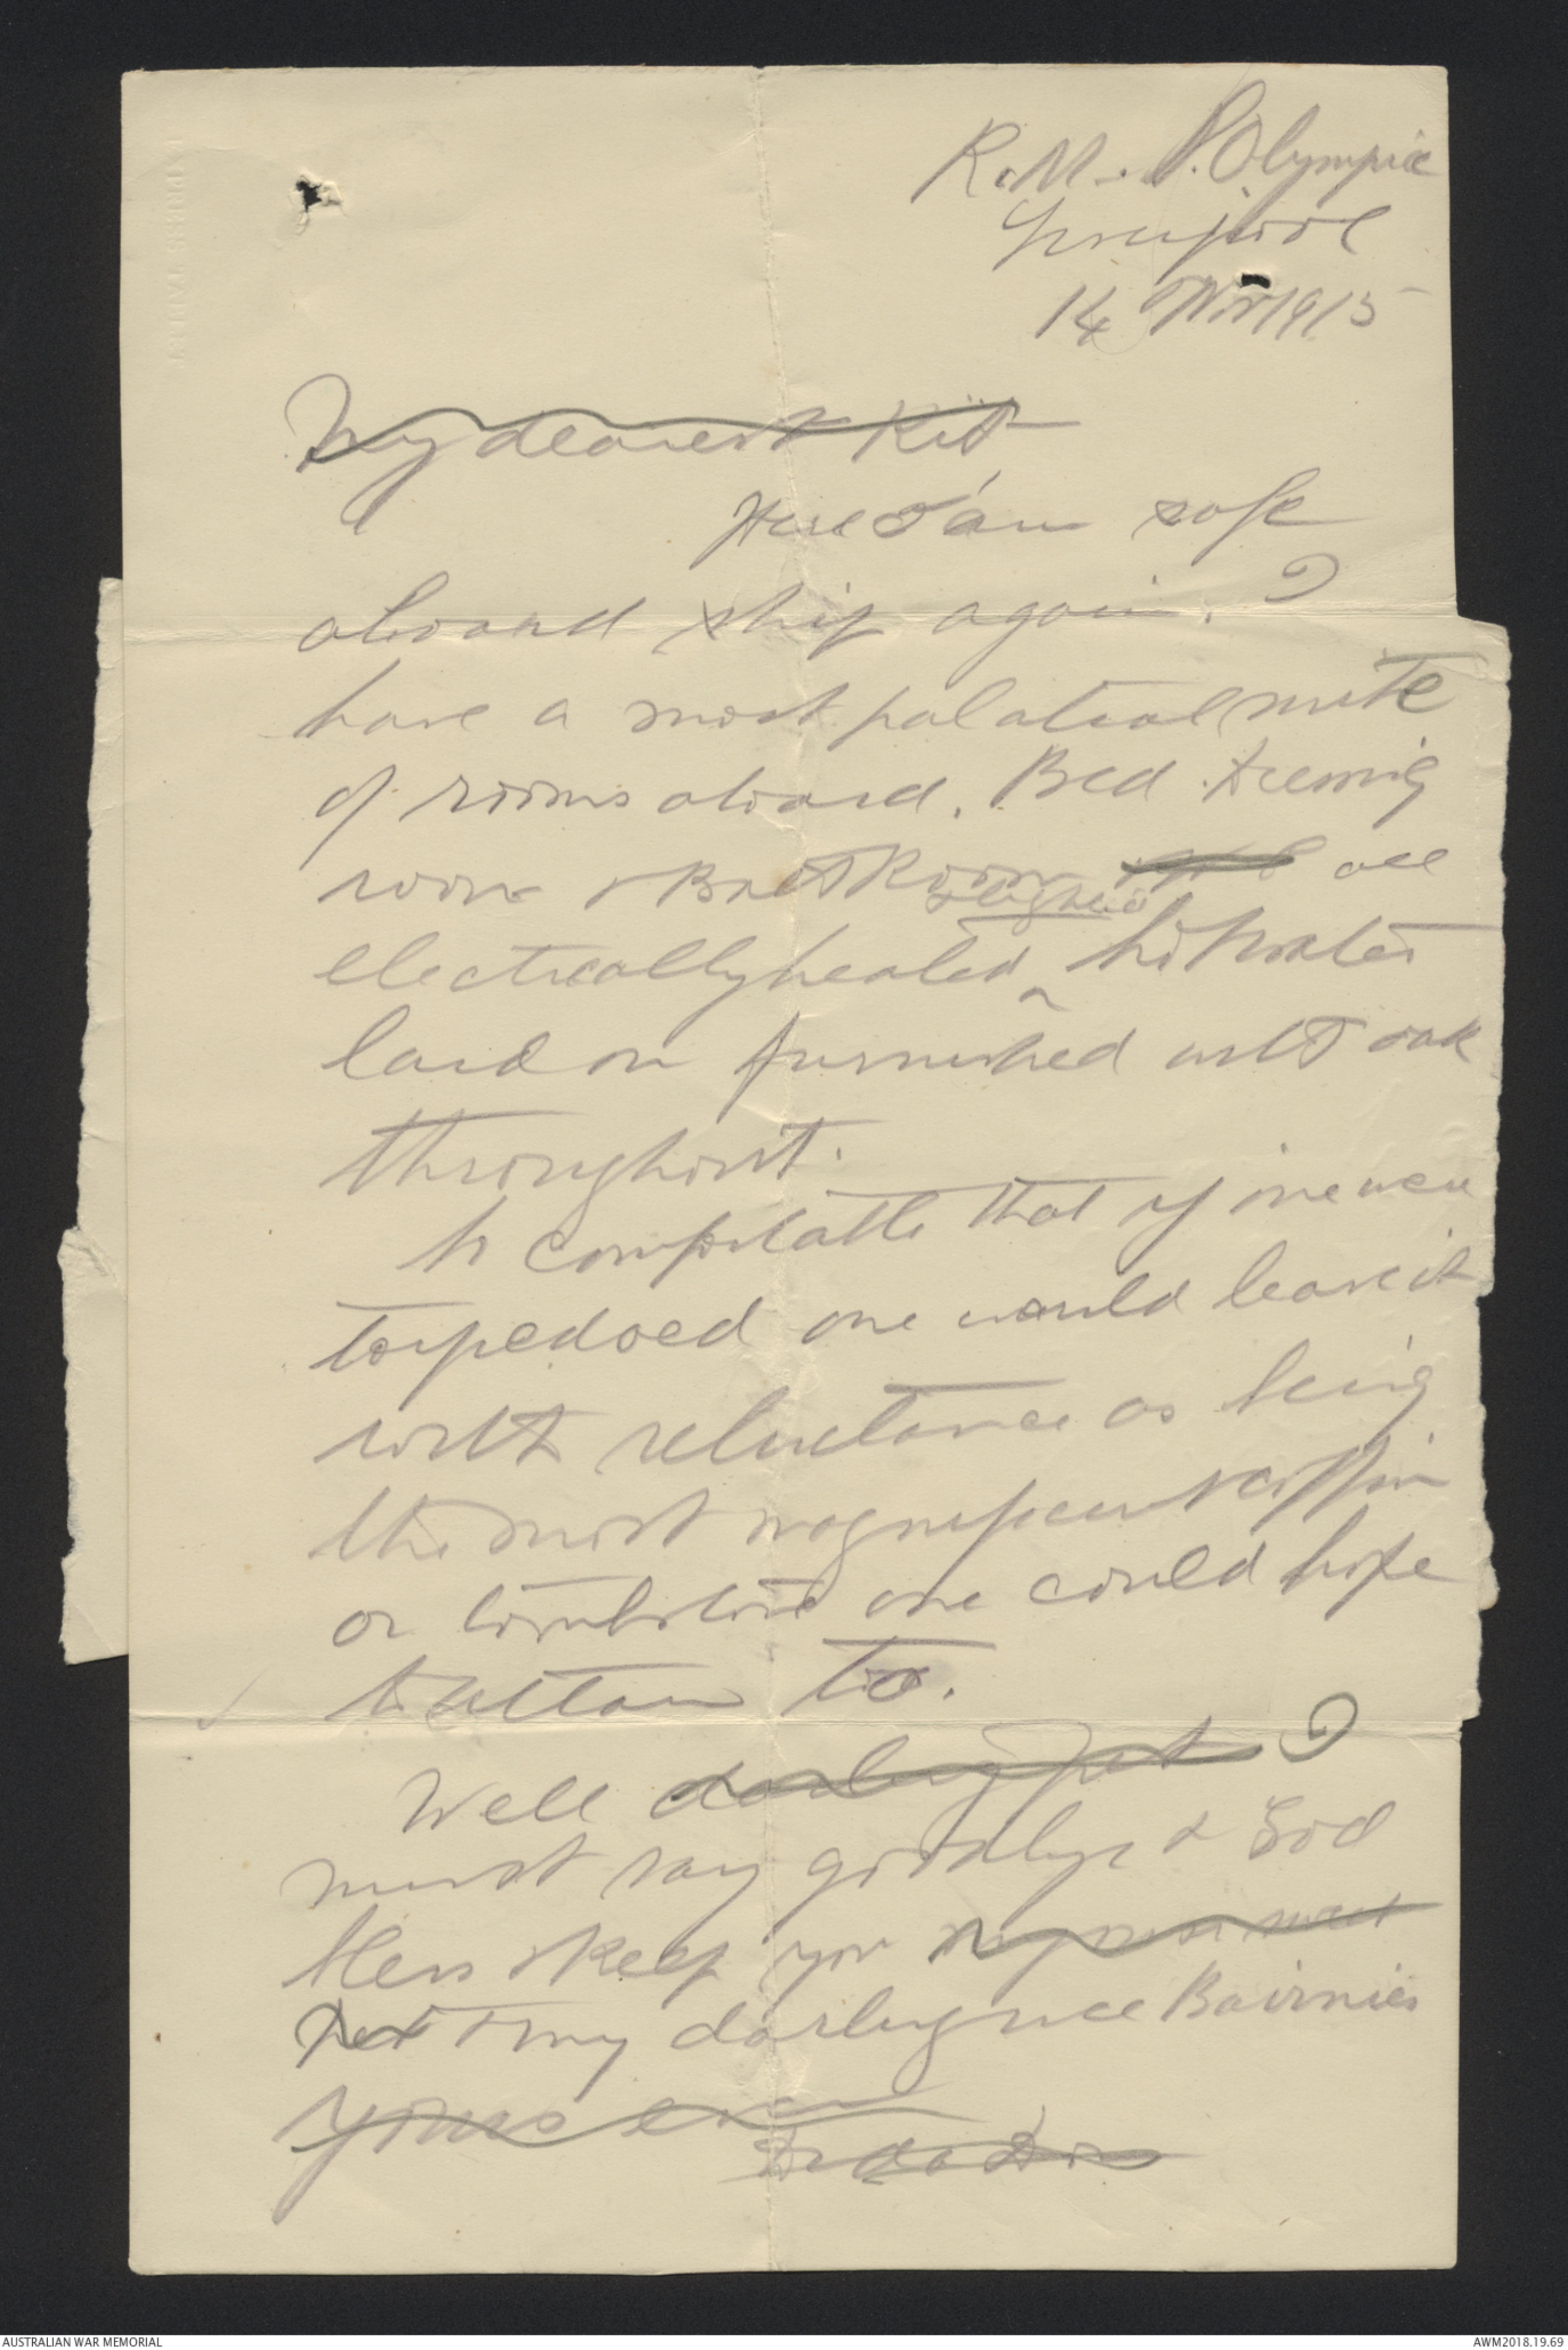 R.M.S. Olympic
Liverpool
14 Nov 1915
My dearest Kit
Here I am safe
aboard ship again. I
have a most palatial suite
of rooms aboard. Bed
room & Bath Room all
electrically heated & lighted hot water
laid on furnished with oak
throughout.
So comfortable that if one were
torpedoed one would leave it
with reluctance as being
the most magnificent coffin
or tombstone one could hope
to attain to.
Well darling I
must say goodbye & God
bless & keep you my
& my darling wee Bairnies
Yours ever
AUSTRALIAN WAR MEMORIAL
AWM2018.19.69